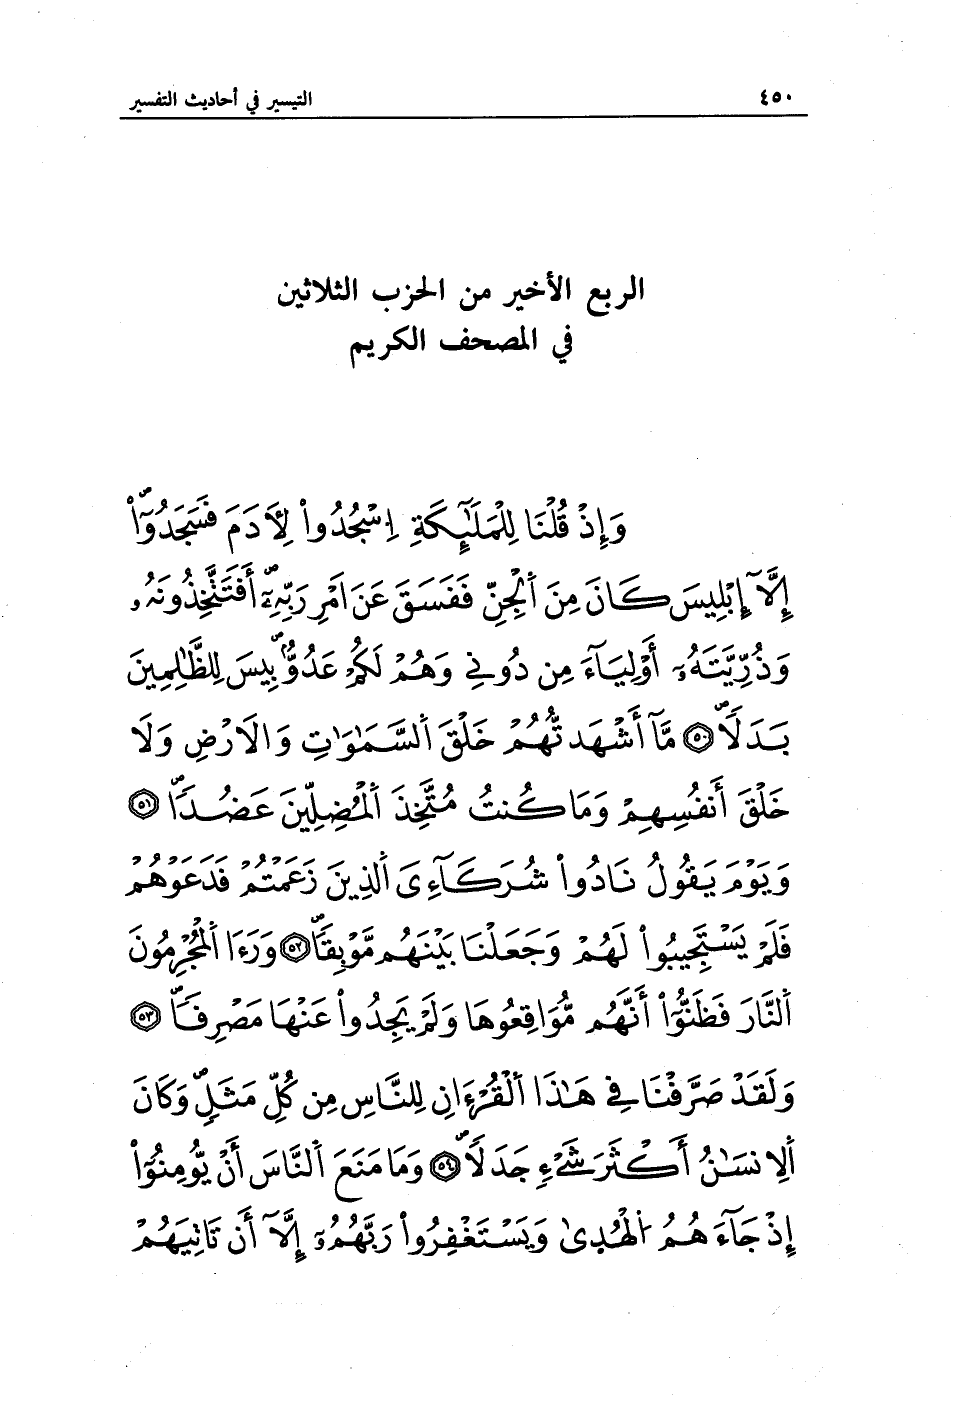 ٤٥٠ التيسير في أحاديث التفسير
الربع الأخير من الحزب الثلاثين
في المصحف الكريم
وَإِذْ قُلْنَا لِلْمَلَٰٓئِكَةِ اِ۟سْجُدُوا۟ لِأَدَمَ فَسَجَدُوٓا۟
إِلَّآ إِبْلِيسَ كَانَ مِنَ اَ۬لْجِنِّ فَفَسَقَ عَنَ اَمْرِ رَبِّهِۦٓ أَفَتَتَّخِذُونَهُۥ
وَذُرِّيَّتَهُۥٓ أَوْلِيَآءَ مِن دُونِے وَهُمْ لَكُمْ عَدُوٌّ بِيسَ لِلظَّٰلِمِينَ
بَدَلًا ۝٥٠ مَّآ أَشْهَدتُّهُمْ خَلْقَ اَ۬لسَّمَٰوَٰتِ وَالَارْضِ وَلَا
خَلْقَ أَنفُسِهِمْ وَمَا كُنتُ مُتَّخِذَ اَ۬لْمُضِلِّينَ عَضُدًا ۝٥١
وَيَوْمَ يَقُولُ نَادُوا۟ شُرَكَآءِىَ اَ۬لذِينَ زَعَمْتُمْ فَدَعَوْهُمْ
فَلَمْ يَسْتَجِيبُوا۟ لَهُمْ وَجَعَلْنَا بَيْنَهُم مَّوْبِقًا ۝٥٢ وَرَءَا اَ۬لْمُجْرِمُونَ
اَ۬لنَّارَ فَظَنُّوٓا۟ أَنَّهُم مُّوَاقِعُوهَا وَلَمْ يَجِدُوا۟ عَنْهَا مَصْرِفًا ۝٥٣
وَلَقَدْ صَرَّفْنَا فِے هَٰذَا اَ۬لْقُرْءَانِ لِلنَّاسِ مِن كُلِّ مَثَلٍ وَكَانَ
اَ۬لِانسَٰنُ أَكْثَرَ شَےْءٍ جَدَلًا ۝٥٤ وَمَا مَنَعَ اَ۬لنَّاسَ أَنْ يُّومِنُوٓا۟
إِذْ جَآءَهُمُ اُ۬لْهُدِىٰ وَيَسْتَغْفِرُوا۟ رَبَّهُمُۥٓ إِلَّآ أَن تَاتِيَهُمْ